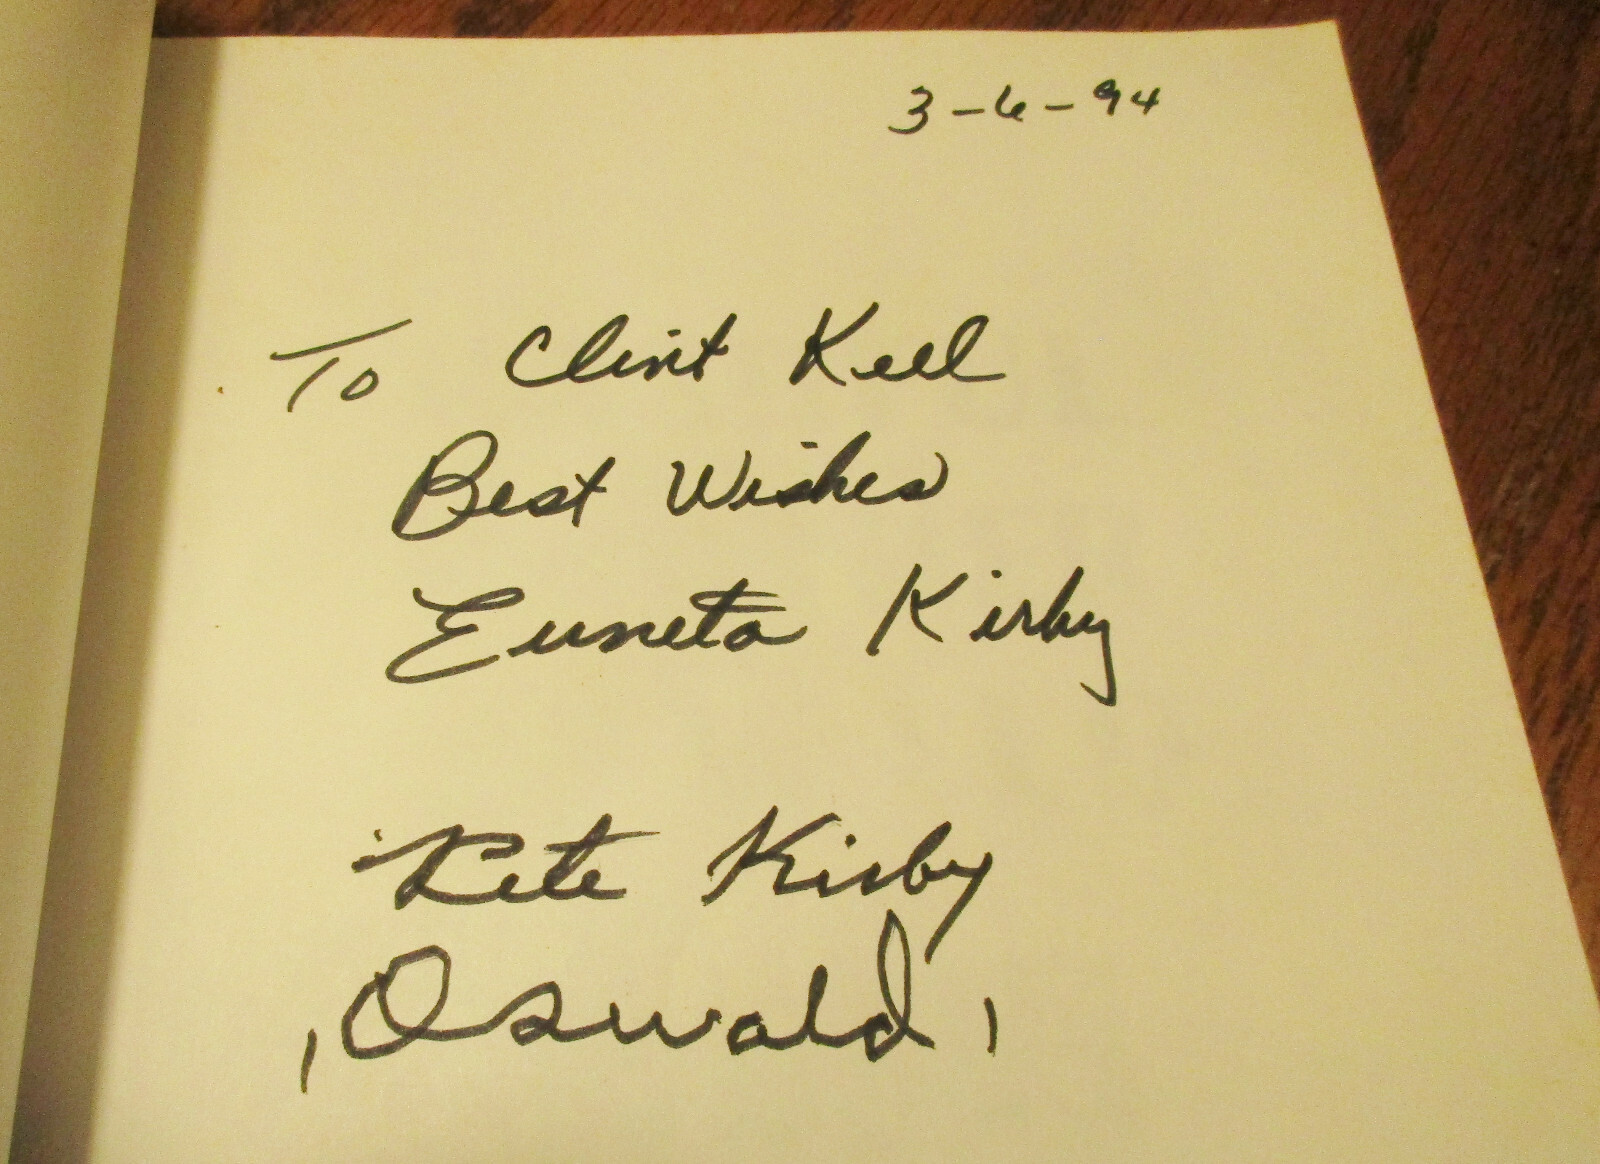 3-6-94
To Clint Keel
Best Wishes
Euneta Kirby
Pete Kirby
"Oswald"